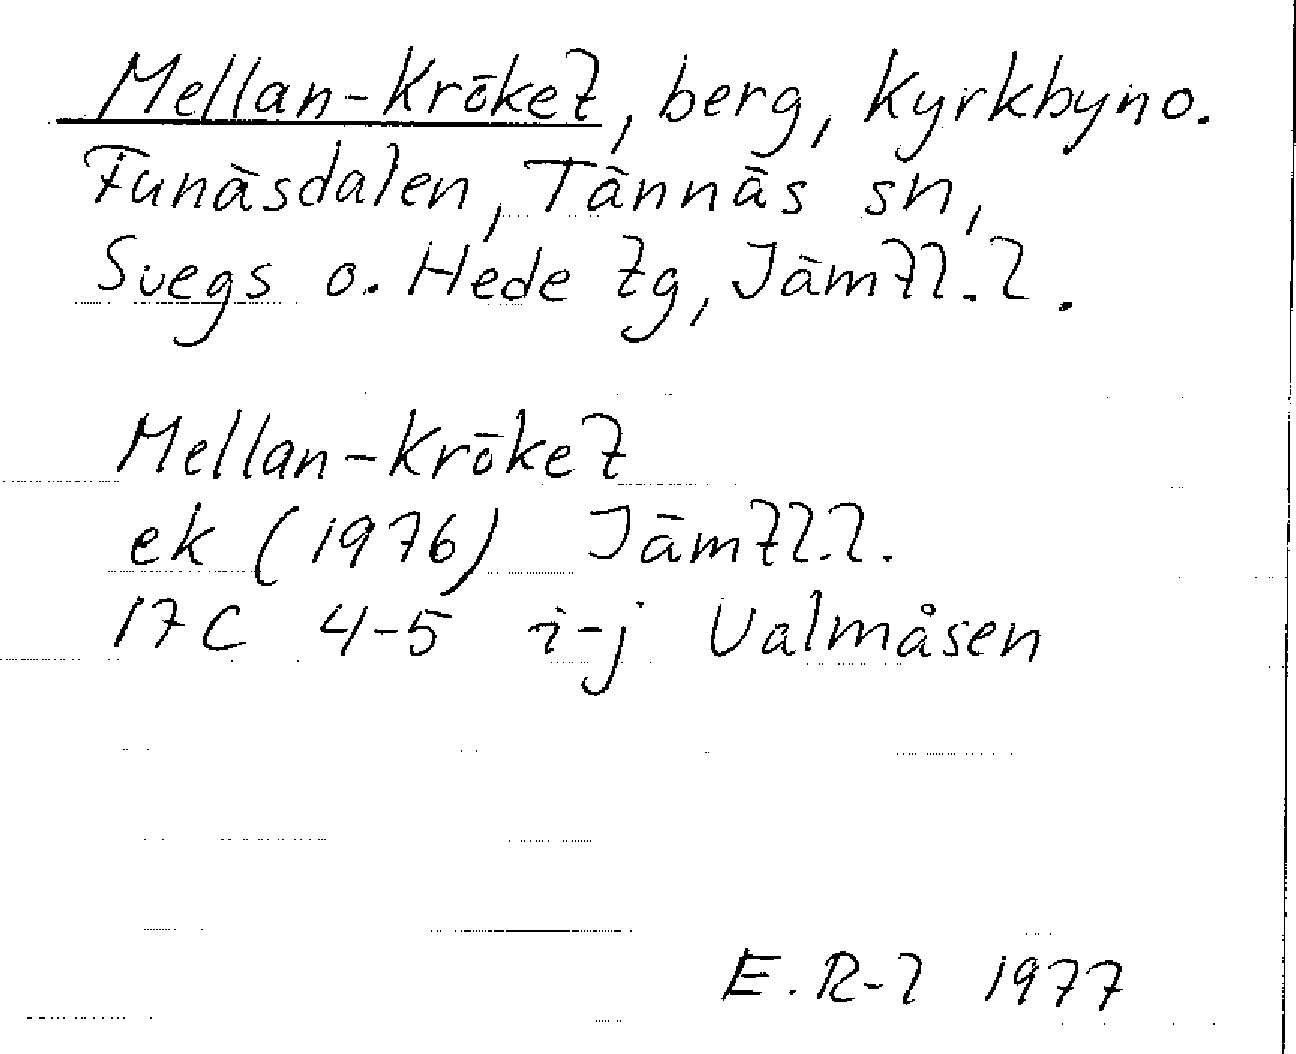 Mellan-Kröket, berg, Kyrkbyn o.
Funäsdalen, Tännäs sn,
Svegs o. Hede tg, Jämtl. l.
Mellan-Kröket
ek (1976) Jämtl. l.
17C 4-5 i-j Valmåsen
E. R-l 1977